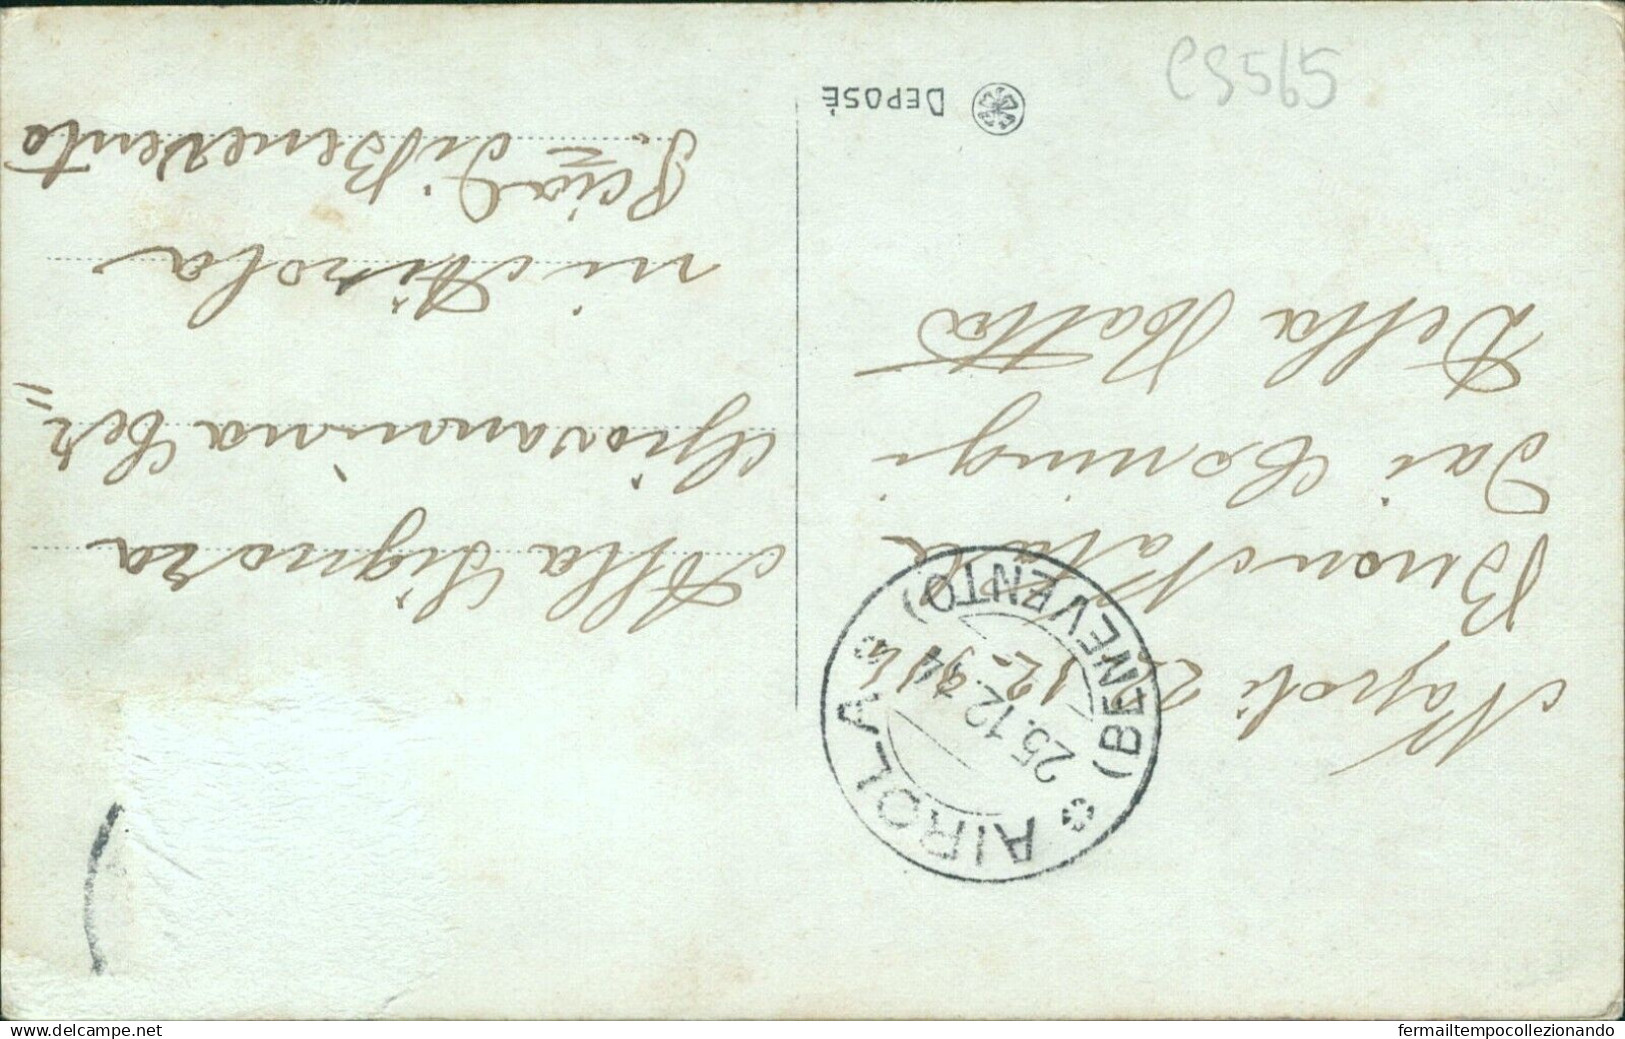 CS565
DEPOSÈ
Napoli 2
12-34
Buon Natale
dai Coniugi
Della Ratta
AIROLA (BENEVENTO)
25.12.34
Alla Signora
Giovannina Cer=
ni Airola
di Benevento
delcampe.net
fermailtempocollezionando